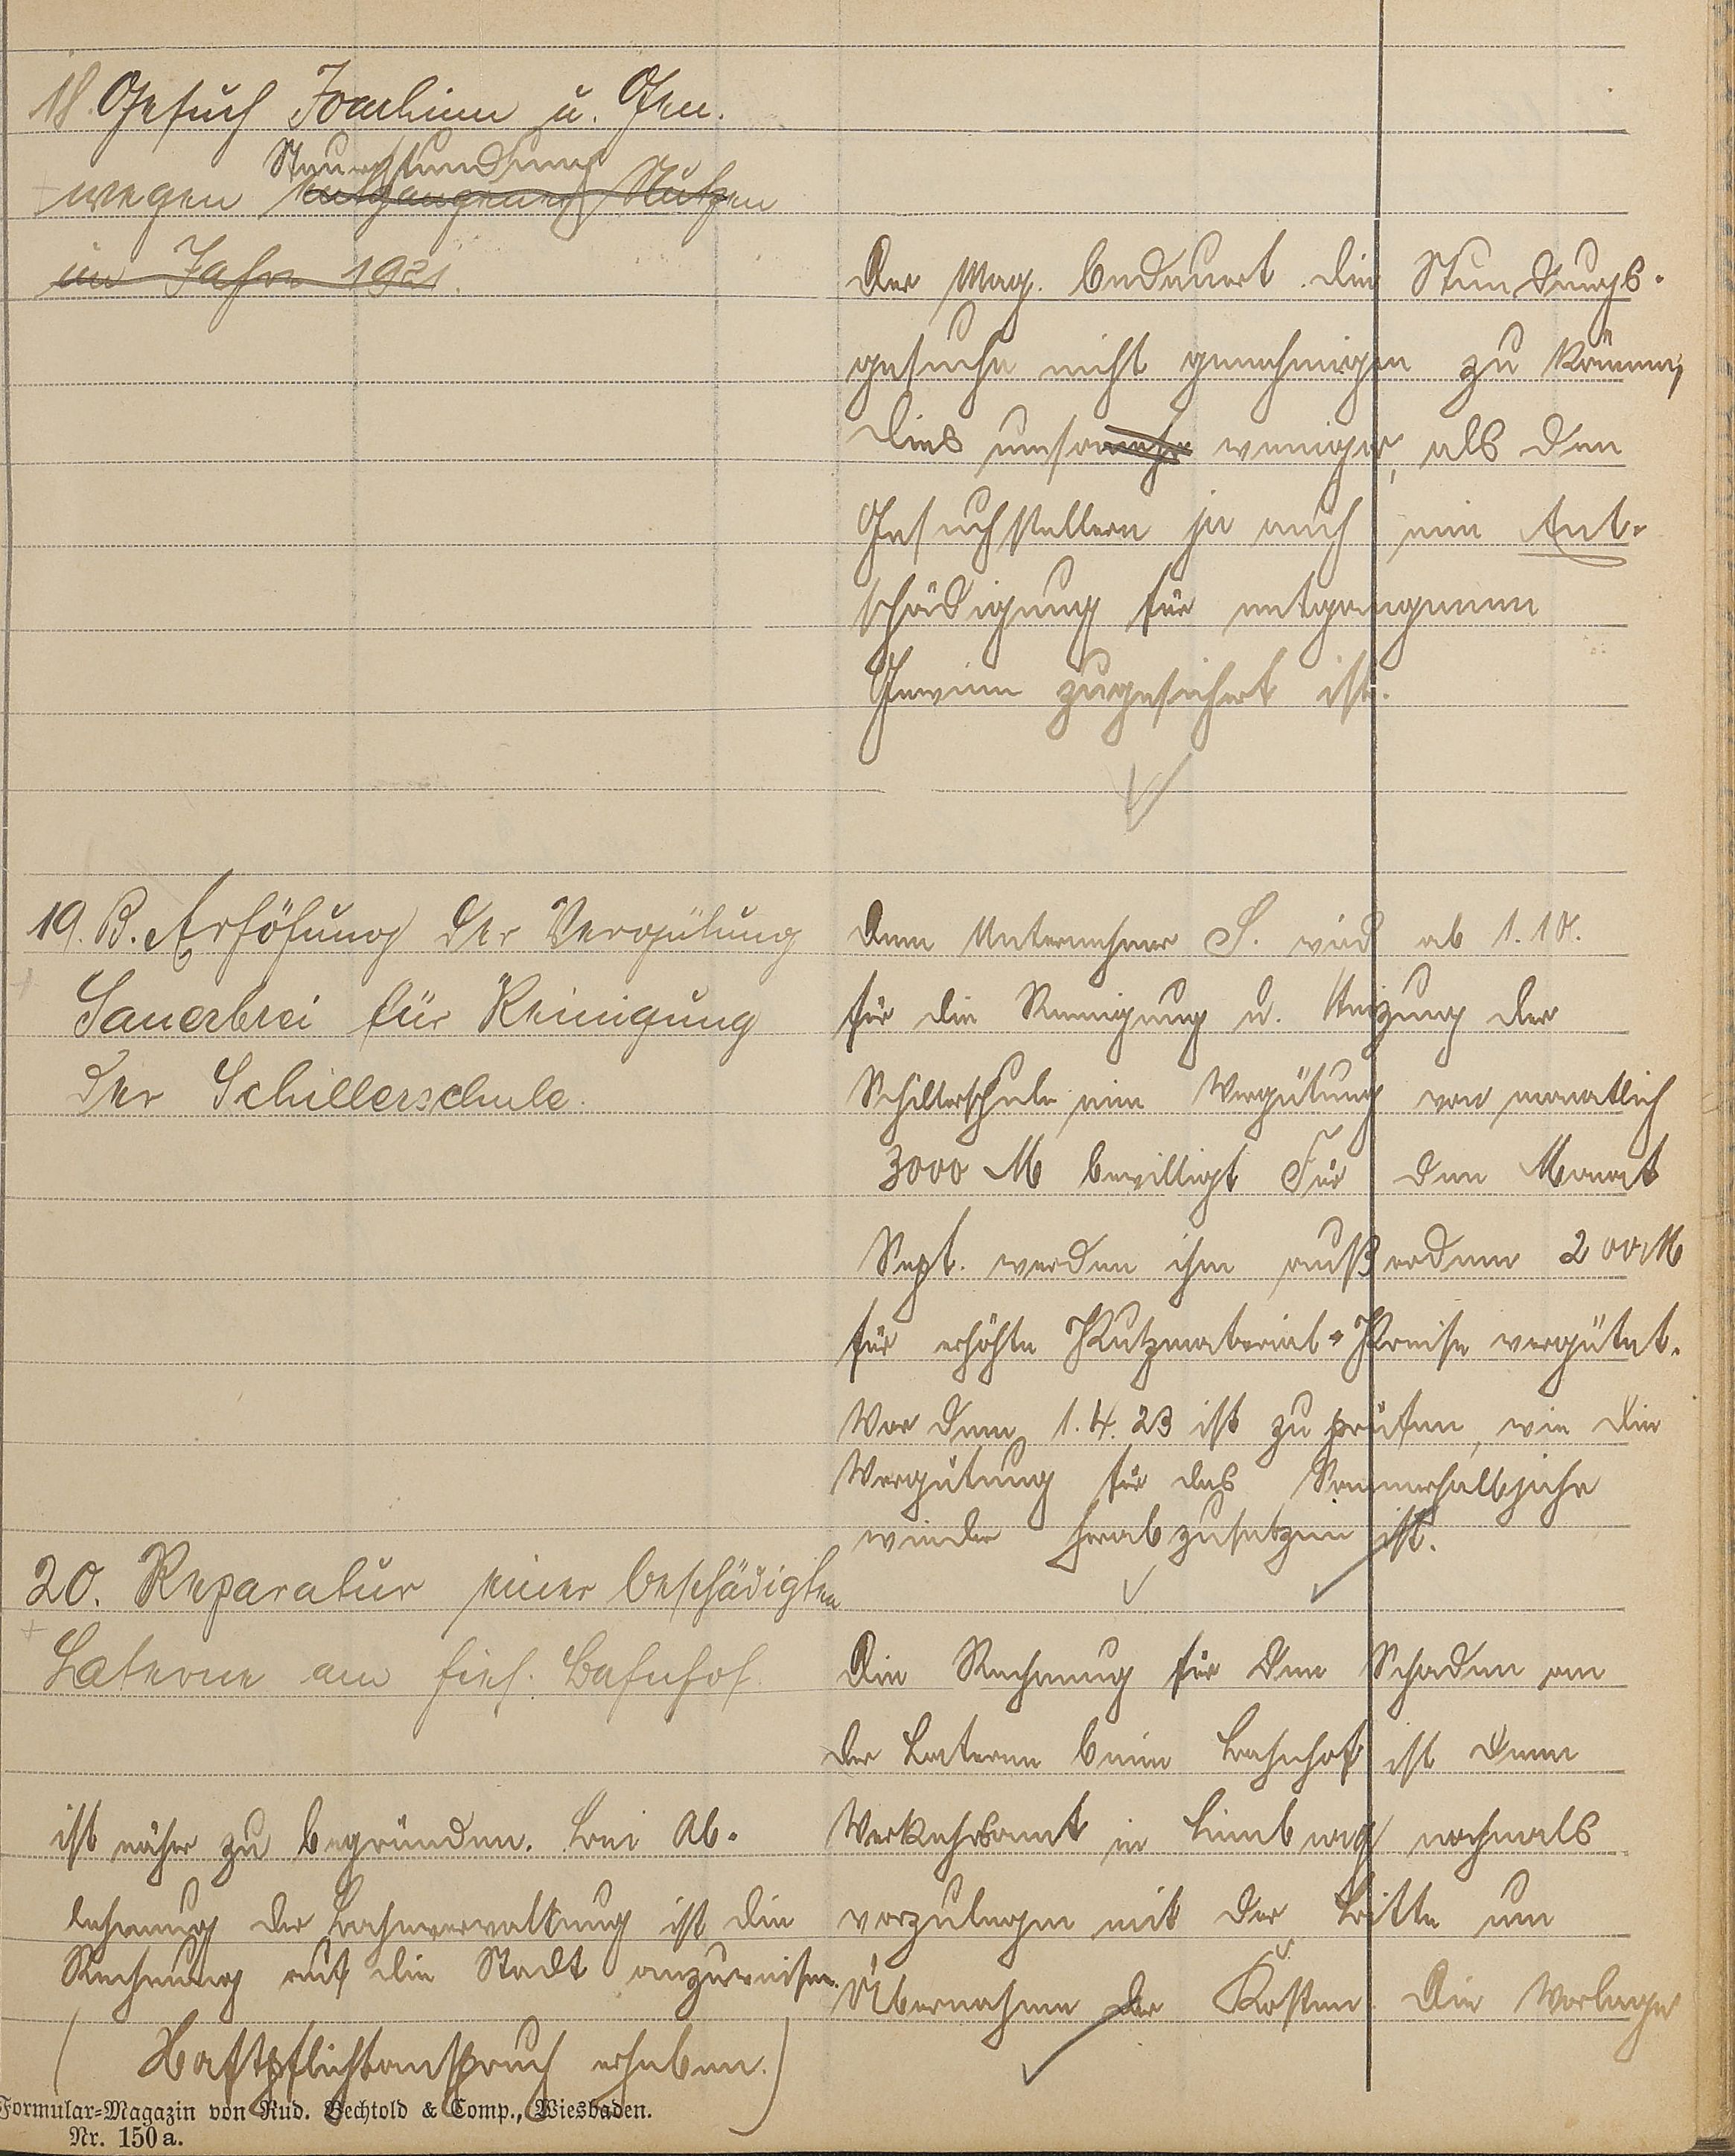 18. Gesuch Joachim u. Gen.
Steuerstundung
wegen entgangenes Nutzen
im Jahre 1921.
Der Mag. bedauert die Stundungs-
gesuche nicht genehmigen zu können,
dies umsomehr weniger, als den
Gesuchstellern ja auch eine Ent-
schädigung für entgangenen
Gewinn zugesichert ist.
19. B. Erhöhung der Vergütung
Sauerbrei für Reinigung
der Schillerschule.
Dem Unternehmer S. wird ab 1.10.
für die Reinigung u. Heizung der
Schillerschule eine Vergütung von monatlich
3000 M bewilligt Für den Monat
Sept. werden ihm außerdem 200 M
für erhöhte Putzmaterial-Preise vergütet.
Vor dem 1.4.23 ist zu prüfen, wie die
Vergütung für das Sommerhalbjahr
wieder herabzusetzen ist.
20. Reparatur einer beschädigten
Laterne am hies. Bahnhof.
Die Rechnung für den Schaden an
der Laterne beim Bahnhof ist dem
Verkehrsamt in Limburg nochmals
vorzulegen mit der Bitte um
Übernahme der Kosten. Die Vorlage
ist näher zu begründen. Bei Ab-
lehnung der Bahnverwaltung ist die
Rechnung auf die Stadt anzuweisen.
( Haftpflichtanspruch erheben.)
Formular-Magazin von Rud. Bechtold & Comp., Wiesbaden.
Nr. 150a.